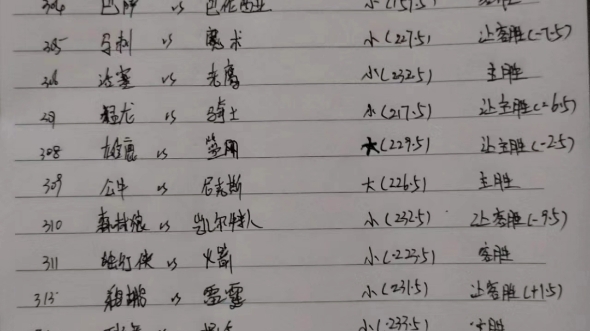 304 巴 vs 小(157.5)
305 马刺 vs 魔术 小(227.5) 让客胜(-7.5)
306 活塞 vs 老鹰 小(232.5) 主胜
猛龙 vs 骑士 小(217.5) 让主胜(-6.5)
308 雄鹿 vs 大(229.5) 让主胜(-2.5)
309 公牛 vs 尼克斯 大(226.5) 主胜
310 森林狼 vs 凯尔特人 小(232.5) 让客胜(-9.5)
311 独行侠 vs 火箭 小(-223.5) 客胜
313 鹈鹕 vs 雷霆 小(231.5) 让客胜(+1.5)
小(-233.5)